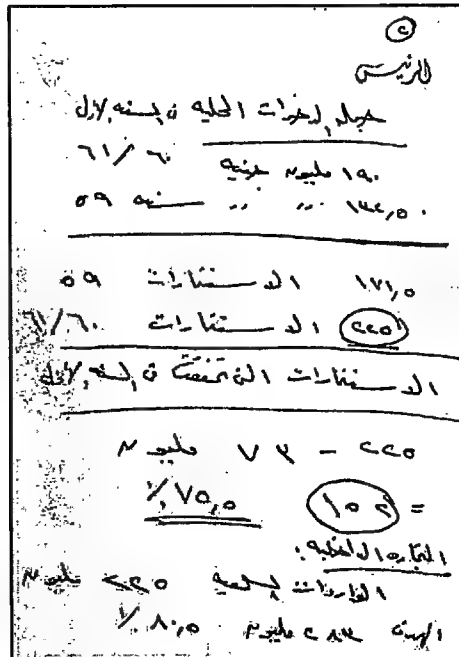 (٢)
الرئيس
جملة المدخرات المحلية في السنة الأولى
٦١/٦٠
١٩٠ مليون جنيه
١٤٢,٥٠ " " سنة ٥٩
١٧١,٥ الاستثمارات ٥٩
٢٢٥ الاستثمارات ٦١/٦٠
الاستثمارات التي تحققت في السنة الأولى
٢٢٥ - ٧٣ مليون
= ١٥٢ ٧٥,٥٪
التجارة الخارجية:
الواردات السلعية ٢٢٥ مليون
الهدف ٢٨٣ مليون ٨٠,٥٪